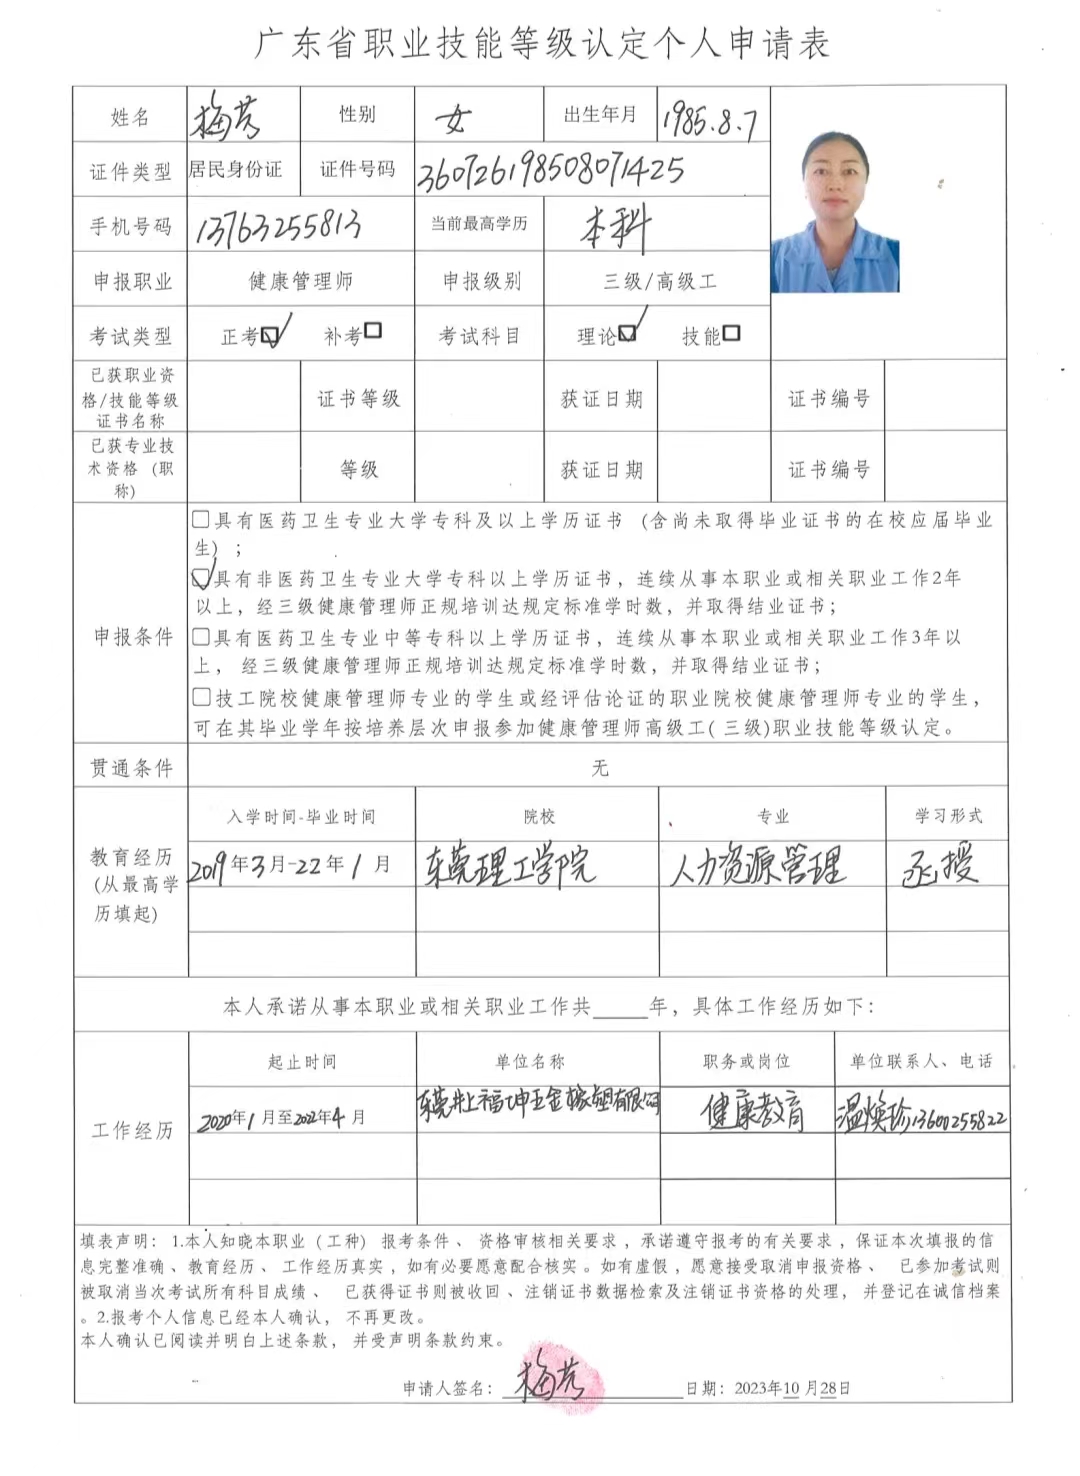 广东省职业技能等级认定个人申请表
姓名 梅芳 性别 女 出生年月 1985.8.7
证件类型 居民身份证 证件号码 360726198508071425
手机号码 13763255813 当前最高学历 本科
申报职业 健康管理师 申报级别 三级/高级工
考试类型 正考☑ 补考□ 考试科目 理论☑ 技能□
已获职业资格/技能等级证书名称 证书等级 获证日期 证书编号
已获专业技术资格（职称） 等级 获证日期 证书编号
申报条件
□具有医药卫生专业大学专科及以上学历证书（含尚未取得毕业证书的在校应届毕业
生）；
☑具有非医药卫生专业大学专科以上学历证书，连续从事本职业或相关职业工作2年
以上，经三级健康管理师正规培训达规定标准学时数，并取得结业证书；
□具有医药卫生专业中等专科以上学历证书，连续从事本职业或相关职业工作3年以
上， 经三级健康管理师正规培训达规定标准学时数，并取得结业证书；
□技工院校健康管理师专业的学生或经评估论证的职业院校健康管理师专业的学生，
可在其毕业学年按培养层次申报参加健康管理师高级工(三级)职业技能等级认定。
贯通条件 无
教育经历(从最高学历填起)
入学时间-毕业时间 院校 专业 学习形式
2019年3月-22年1月 东莞理工学院 人力资源管理 函授
本人承诺从事本职业或相关职业工作共____年，具体工作经历如下：
工作经历
起止时间 单位名称 职务或岗位 单位联系人、电话
2020年1月至2022年4月 东莞井上福坤五金橡塑有限公司 健康教育 温焕珍13600255822
填表声明：1.本人知晓本职业（工种）报考条件、资格审核相关要求，承诺遵守报考的有关要求，保证本次填报的信
息完整准确、教育经历、工作经历真实，如有必要愿意配合核实。如有虚假，愿意接受取消申报资格、 已参加考试则
被取消当次考试所有科目成绩、 已获得证书则被收回、注销证书数据检索及注销证书资格的处理，并登记在诚信档案
。2.报考个人信息已经本人确认，不再更改。
本人确认已阅读并明白上述条款，并受声明条款约束。
申请人签名：梅芳 日期：2023年10月28日